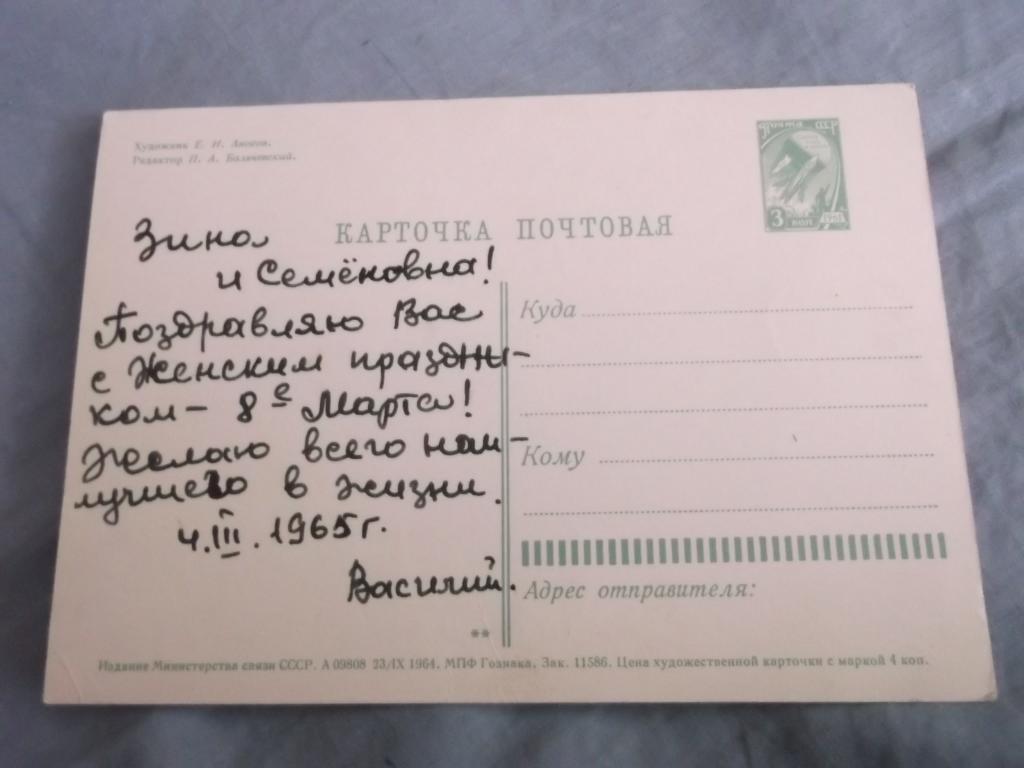 Художник Е. Н. Аносов.
Редактор Н. А.
Почта СССР
3 коп
1961
КАРТОЧКА ПОЧТОВАЯ
Зина
и Семёновна!
Поздравляю Вас
с Женским праздни-
ком - 8е Марта!
Желаю всего наи-
лучшего в жизни.
4.III.1965 г.
Василий.
Куда
Кому
Адрес отправителя:
**
Издание Министерства связи СССР. А 09808 23/IX 1964. МПФ Гознака. Зак. 11586. Цена художественной карточки с маркой 4 коп.